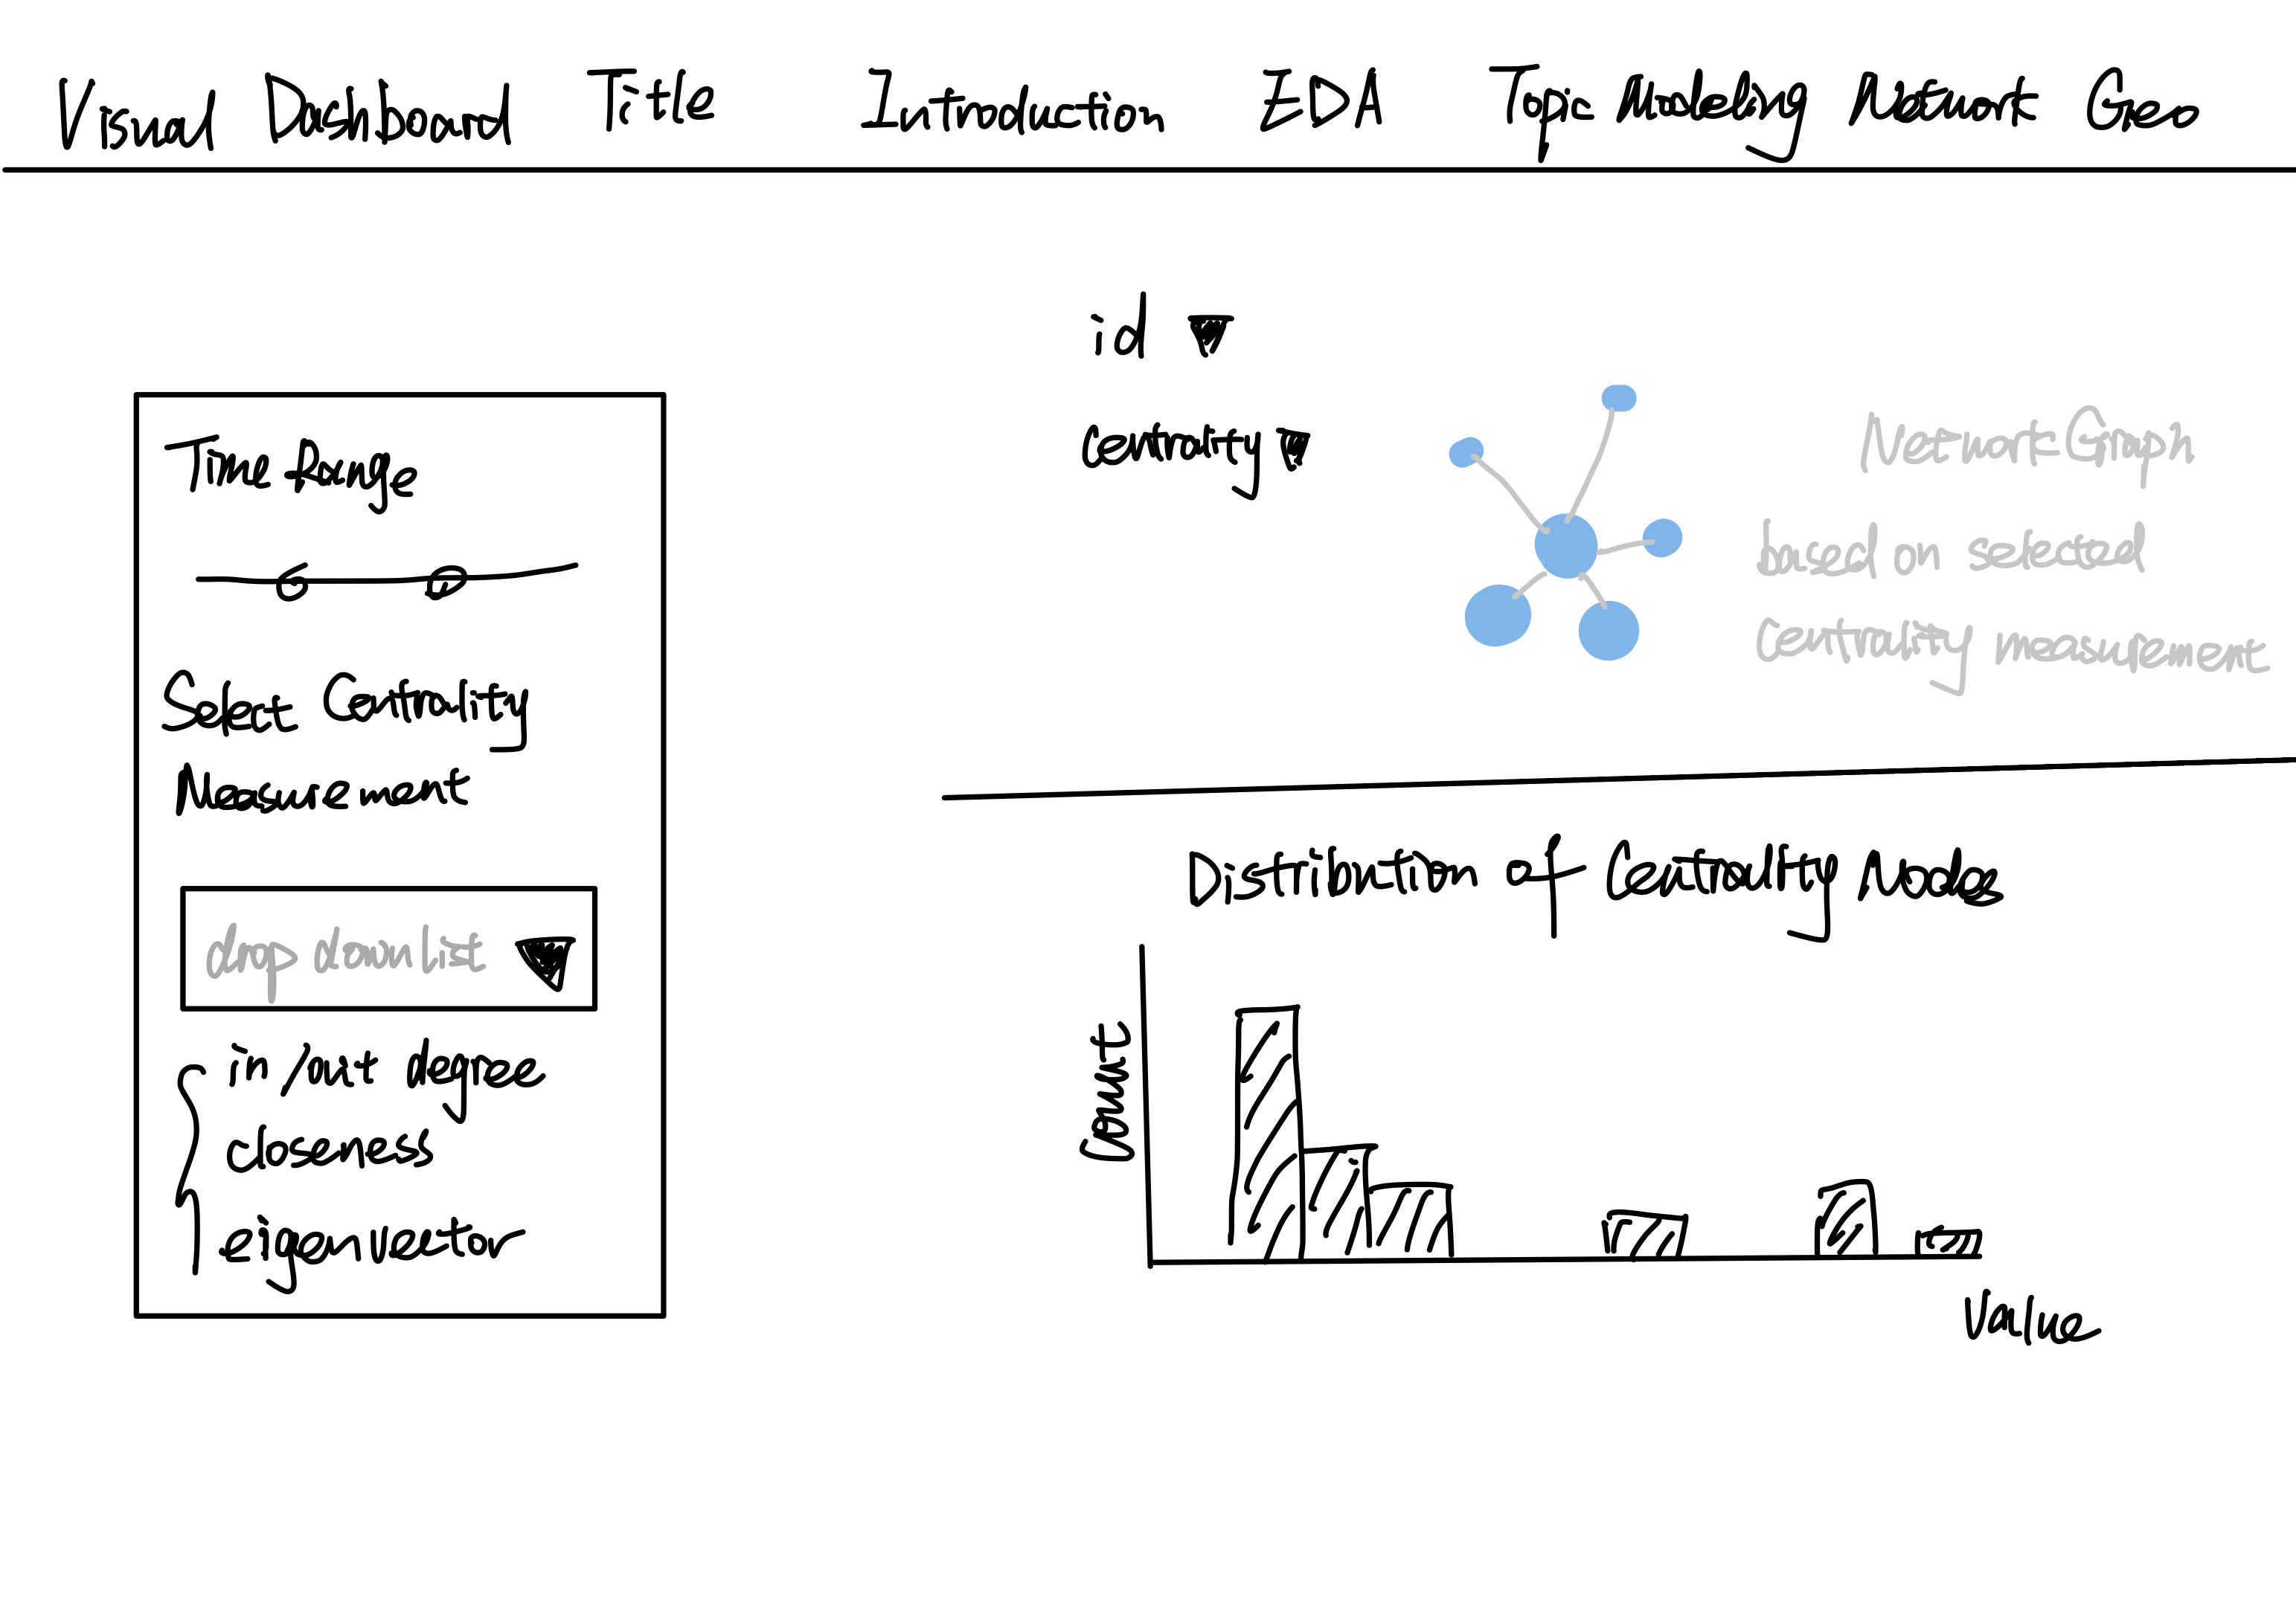 Visual Dashboard Title Introduction EDA Topic Modelling Network Geo
Time Range
Select Centrality
Measurement
drop down list
in/out degree
closeness
eigenvector
id
centrality
Network Graph
based on selected
Centrality measurement
Distribution of Centrality Nodes
Count
Value